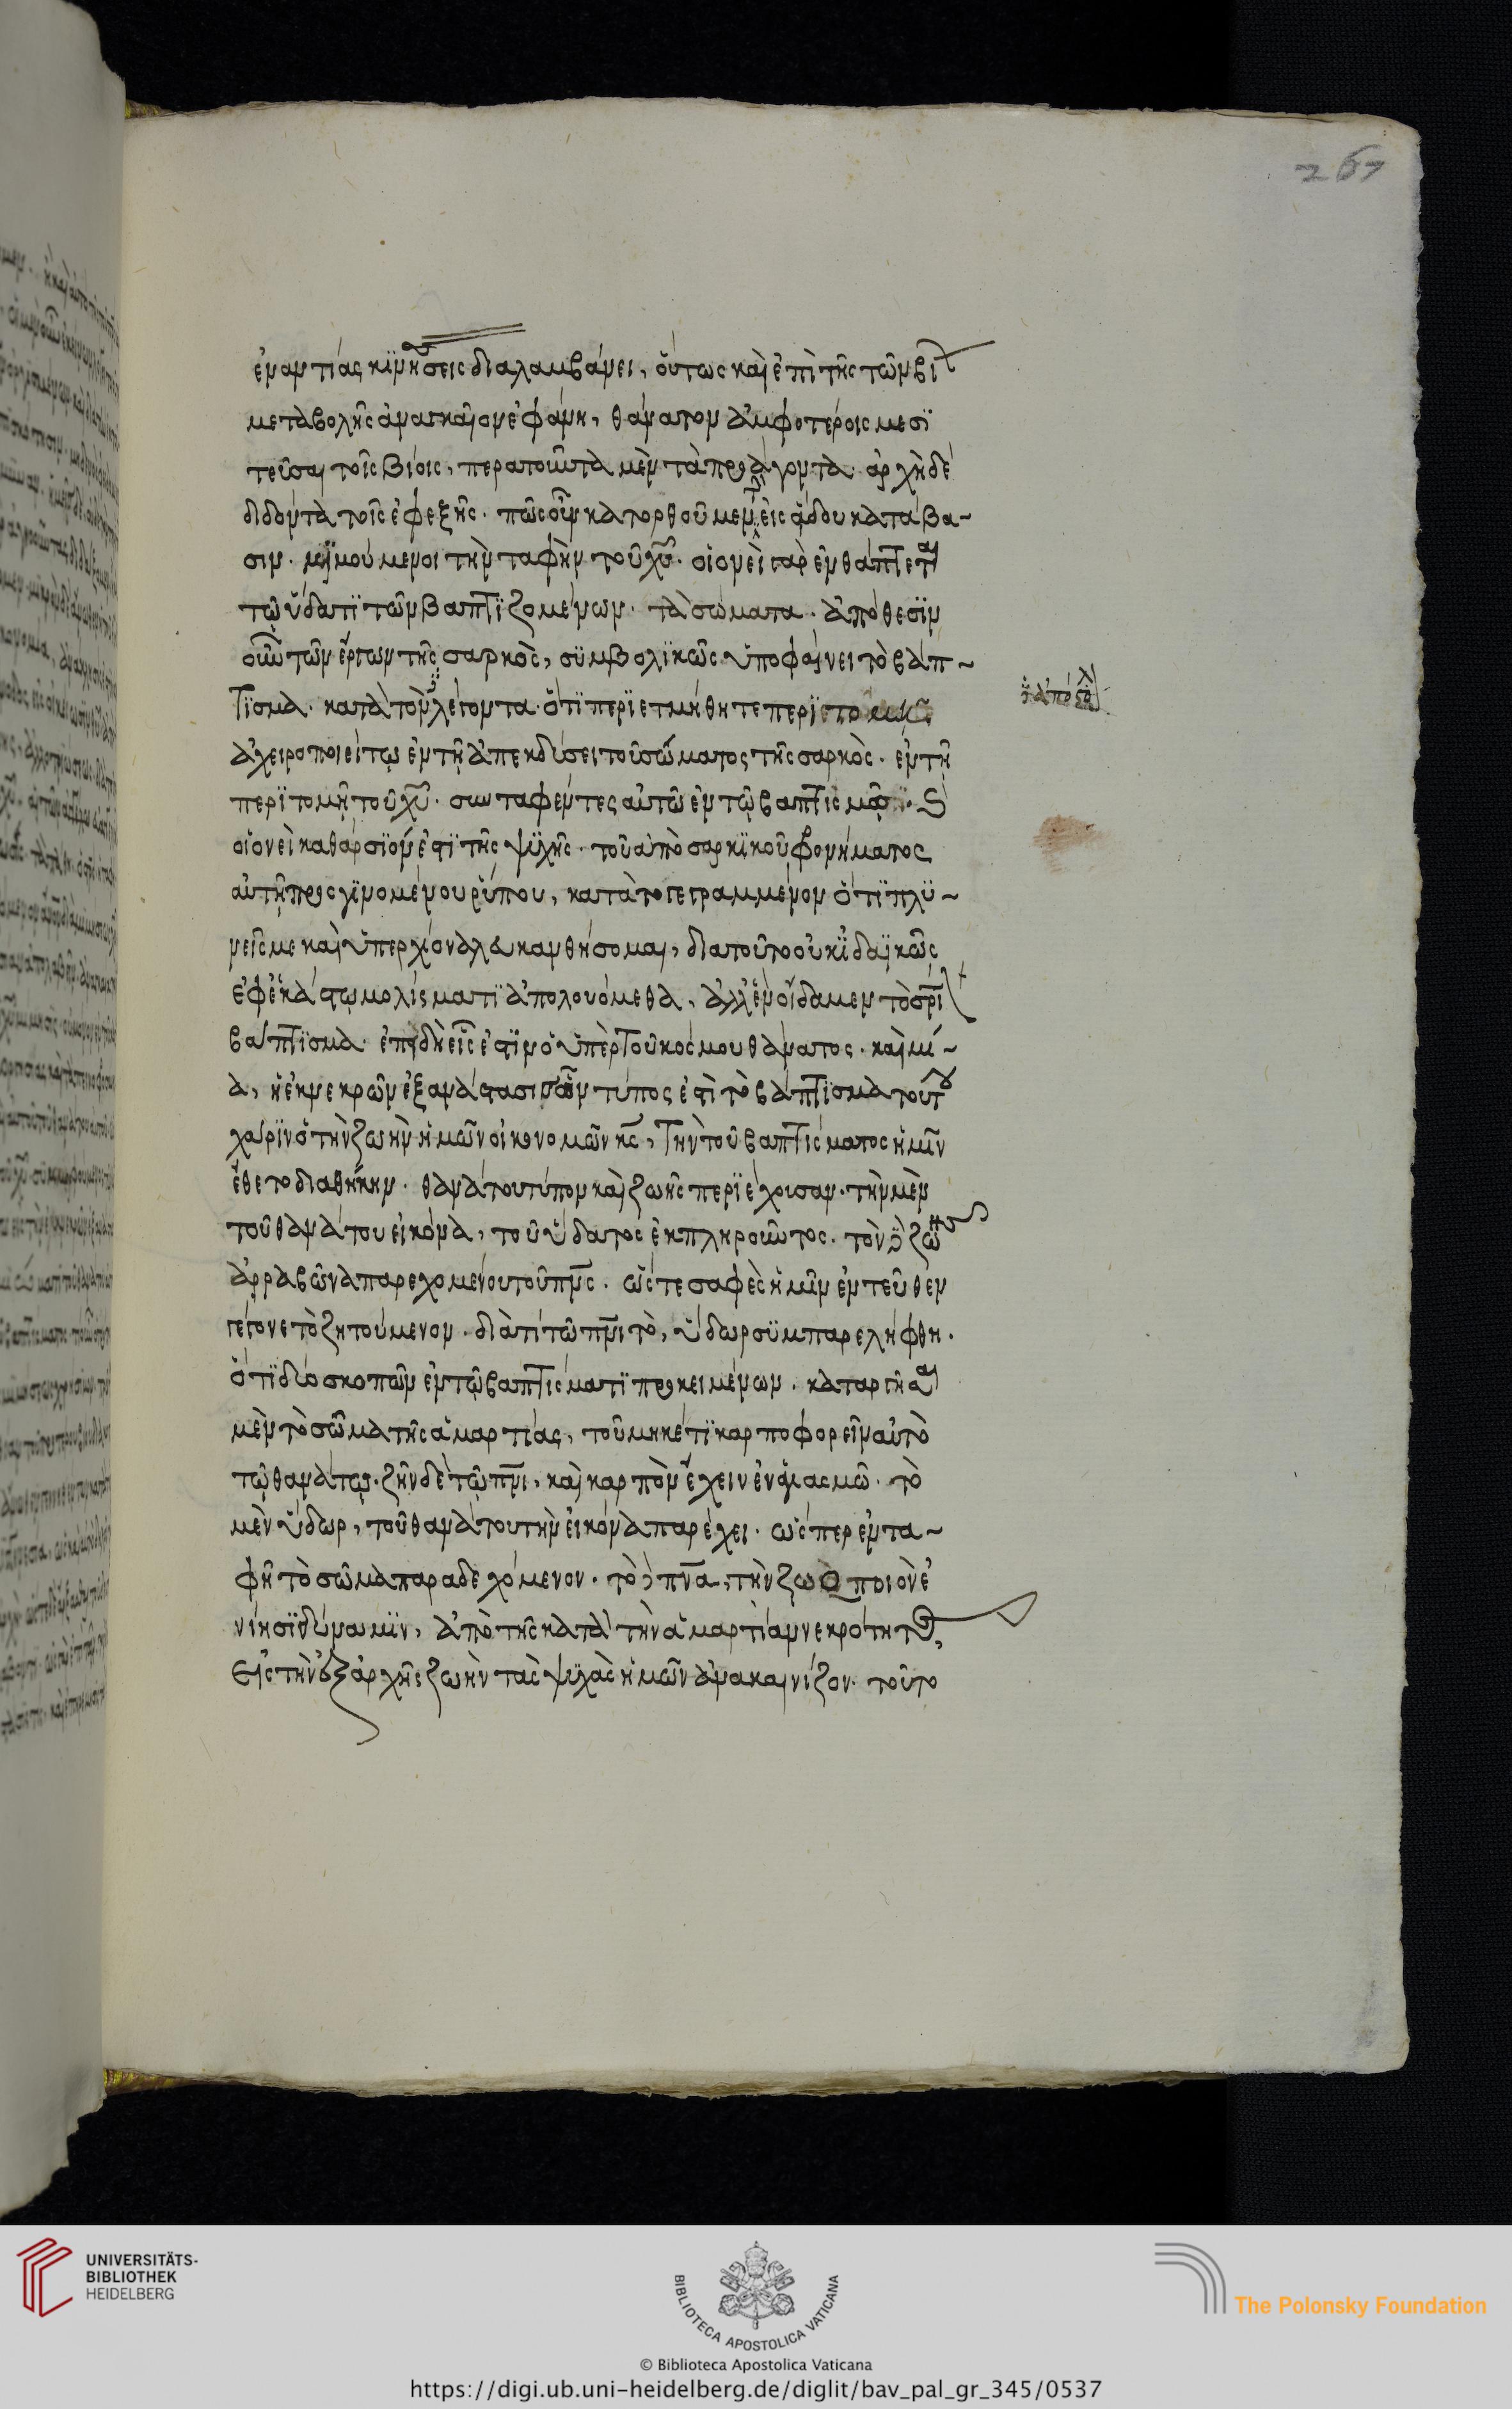 267
ἐναντίας κϊνήσεις διαλαμβάνει, οὕτως καὶ ἐπὶ τῆς τῶν βί
μεταβολῆς ἀναγκαῖον ἐφάνη, θάνατον ἀμφοτέροις μεσϊ
τεῦσαι τοῖς βίοις, περατοῦντα μὲν τὰ προάγοντα· ἀρχὴ δὲ
διδόντα τοῖς ἐφεξῆς· πῶς οὖν κατορθοῦμεν εἰς ᾅδου κατάβα~
σιν· μϊμούμενοι τὴν ταφὴν τοῦ χυ· οἱονεὶ γὰρ ἐνθάπτεται
τῷ ὕδατϊ τῶν βαπτϊζομένων· τὰ σώματα· ἀπόθεσϊν
οὖν τῶν ἔργων τῆς σαρκὸς, σϋμβολϊκῶς ὑποφαίνει τὸ βάπ~
τϊσμα· κατὰ τὸν λέγοντα· ὅτϊ περϊετμήθητε περϊτομῇ
ἀχειροποιείτῳ ἐν τῇ ἀπεκδύσει τοῦ σώματος τῆς σαρκὸς· ἐν τῇ
περϊτομῇ τοῦ χυ· συνταφέντες αὐτῶ ἐν τῷ βαπτίσματϊ· S
οἱονεὶ καθάρσϊόν ἐστϊ τῆς ψϋχῆς· τοῦ ἀπὸ σαρκϊκοῦ φρονήματος
αὐτῇ προσγϊνομένου ῥύπου, κατὰ τὸ γεγραμμένον ὅτϊ πλϋ~
νεῖς με καὶ ὑπὲρ χϊόνα λευκανθήσομαι, διατοῦτο οὐκ ἰ̈ουδαϊκῶς
ἐφ ἑκάστῳ μολίσματϊ ἀπολουόμεθα, ἀλλ ἓν οἴδαμεν τὸ σρϊ
βάπτϊσμα· ἐπειδὴ εἷς ἐστϊν ὁ ὑπὲρ τοῦ κόσμου θάνατος· καὶ μί~
α, ἡ ἐκ νεκρῶν ἐξανάστασις ὧν τύπος ἐστὶ τὸ βάπτϊσμα τούτου
χάρϊν ὁ τὴν ζωὴν ἡμῶν οἰκονομῶν κς, τὴν τοῦ βαπτίσματος ἡμῖν
ἔθετο διαθήκην· θανάτου τύπον καὶ ζωῆς περϊέχουσαν· τὴν μὲν
τοῦ θανάτου εἰκόνα, τοῦ ὕδατος ἐκπληροῦντος· τὸν δὲ ζωῆς
ἀρραβῶνα παρεχομένου τοῦ πνς· ὥστε σαφὲς ἡμῖν ἐντεῦθεν
γέγονε τὸ ζητούμενον· διὰ τί τῶ πνι τὸ, ὕδωρ σϋμπαρελήφθη·
ὅτϊ δύο σκοπῶν ἐν τῷ βαπτίσματϊ προκειμένων· καταργῆσαι
μὲν τὸ σῶμα τῆς ἁμαρτίας, τοῦ μηκέτϊ καρποφορεῖν αὐτὸ
τῷ θανάτῳ· ζῆν δὲ τῷ πνι, καὶ καρπὸν ἔχειν ἐν ἁγιασμῶ· τὸ
μὲν ὕδωρ, τοῦ θανάτου τὴν εἰκόνα παρέχει· ὥσπερ ἐν τα~
φῇ τὸ σῶμα παραδεχόμενον· τὸ δὲ πνα, τὴν ζωοποιὸν ἐ
νίησϊ δύναμϊν, ἀπὸ τῆς κατὰ τὴν ἁμαρτίαν νεκρότητος,
Εἰς τὴν ἐξ ἀρχῆς ζωὴν τὰς ψϋχὰς ἡμῶν ἀνακαινίζον· τοῦτο
UNIVERSITÄTS-
BIBLIOTHEK
HEIDELBERG
BIBLIOTECA APOSTOLICA VATICANA
The Polonsky Foundation
© Biblioteca Apostolica Vaticana
https://digi.ub.uni-heidelberg.de/diglit/bav_pal_gr_345/0537